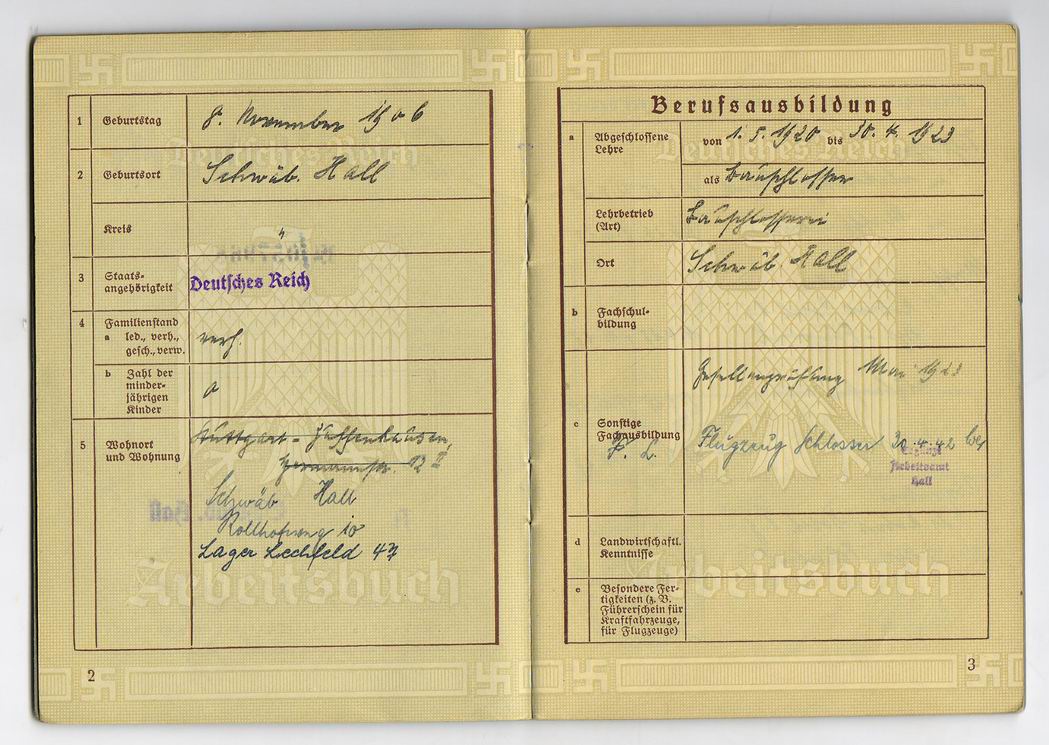 1 Geburtstag 8. November 1906
2 Geburtsort Schwäb. Hall
Kreis "
3 Staats-
angehörigkeit Deutsches Reich
4 Familienstand
a led., verh.,
gesch., verw. verh.
b Zahl der
minder-
jährigen
Kinder
5 Wohnort
und Wohnung
Stuttgart - Zuffenhausen,
12 II
Schwäb Hall
Rollhofweg 10
Lager Lechfeld 47
Arbeitsbuch
2
Berufsausbildung
a Abgeschlossene
Lehre
von 1. 5. 1920 bis 30. 4. 1923
als Bauschlosser
Lehrbetrieb
(Art) Bauschlosserei
Ort Schwäb. Hall
b Fachschul-
bildung
c Sonstige
Fachausbildung
Gesellenprüfung Mai 1923
Flugzeug Schlosser 30.4.42
Arbeitsamt
Hall
d Landwirtschaftl.
Kenntnisse
e Besondere Fer-
tigkeiten (z. B.
Führerschein für
Kraftfahrzeuge,
für Flugzeuge)
Deutsches Reich
Arbeitsbuch
3